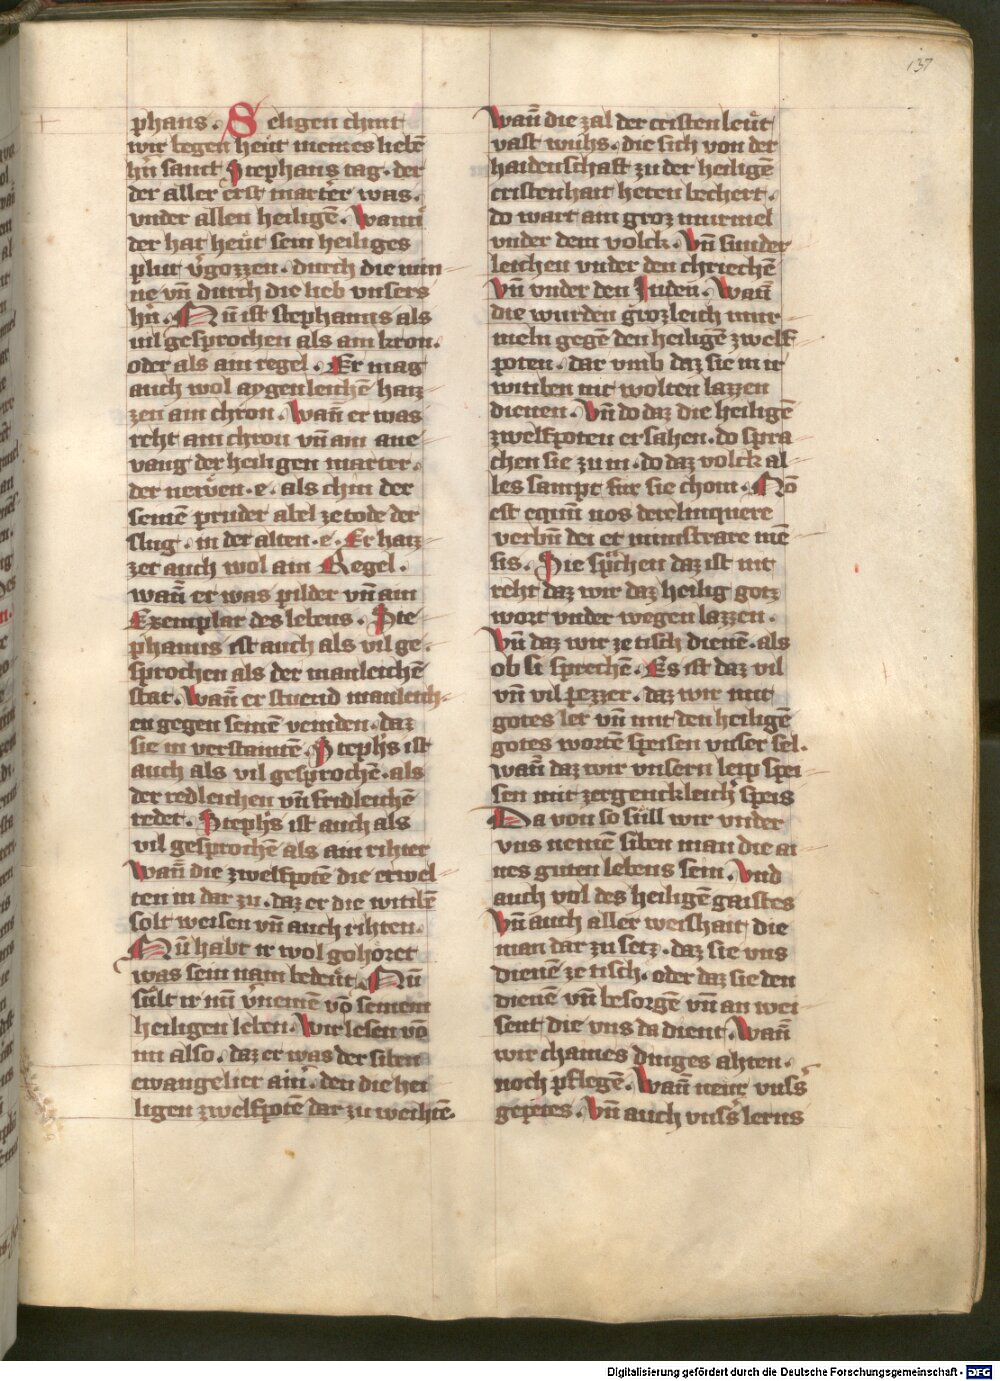 137
phans. Seligen chint
wir begen heut meines liebē
hr̄n sanct Stephans tag. der
der aller erst martrer was.
vnder allen heiligē. Wann
der hat heut sein heiliges
plut v̓gozzen. durch die min
ne vn̄ durch die lieb vnsers
hr̄n. Nu ist stephanus als
vil gesprochen als ain kron.
oder als ain regel. Er mag
auch wol aygenleichē haiz
zen ain chron. Wan̄ er was
reht ain chron vn̄ ain ane
vang der heiligen marter.
der newen. e. als chin der
seinē pruder abel ze tode der
slug. in der alten. e. Er haiz
zet auch wol ain Regel.
wan̄ er was pilder vn̄ ain
Exemplar des lebens. Ste
phanus ist auch als vil ge
sprochen als der manleichē
stat. Wan̄ er stuend manleich
en gegen seinē veinden. daz
sie in verstaintē. Stephūs ist
auch als vil gesprochē. als
der redleichen vn̄ fridleichē
redet. Stephūs ist auch als
vil gesprochē als ain rihter
Wan̄ die zwelfpotē die erwel
ten in dar zu. daz er die witibē
solt weisen vn̄ auch rihten.
Nu habt ir wol gehoret
was sein nam bedeut. Nu
sult ir nu v̓nemē vō seinem
heiligen leben. Wir lesen vō
im also. daz er was der siben
ewangelier ain̓. den die hei
ligen zwelfpotē dar zu weichtē.
Wan̄ die zal der cristen leut
vast wuhs. die sich von der
haidenschaft zu der heiligē
cristenhait heten bechert.
do wart ain groz murmel
vnder dem volck. Vn̄ sunder
leichen vnder den chriechē
Vn̄ vnder den Juden. Wan̄
die wurden grozleich mur
meln gegē den heiligē zwelf
poten. dar vmb daz sie in ir
witiben nit wolten lazzen
dienen. Vn̄ do daz die heiligē
zwelfpoten ersahen. do spra
chen sie zu in. do daz volck al
les sampt fur sie chom. Nō
est equm̄ nos derelinquere
verbu̅ dei et ministrare mē
sis. Sie sprachen daz ist nit
reht daz wir daz heilig gotz
wort vnder wegen lazzen.
Vn̄ daz wir ze tisch dienē. als
ob si sprechē. Es ist daz vil
vn̄ vil pezzer. daz wir mit
gotes ler vn̄ mit den heiligē
gotes wortē speisen vnser sel.
wan̄ daz wir vnsern leip spei
sen mit zergenckleich̓ speis
Da von so sull wir vnder
vns nemē siben man die ai
nes guten lebens sein. Vnd
auch vol des heiligē gaistes
Vn̄ auch aller weishait die
man dar zu setz. daz sie vns
dienē ze tisch. oder daz sie den
dienē vn̄ besorgē vn̄ an wei
sent die vns da dient. Wan̄
wir chaines dinges ahten.
noch pflegē. Wan̄ neur vnss̓
gepetes. Vn̄ auch vnss̓ lerns
Digitalisierung gefördert durch die Deutsche Forschungsgemeinschaft - DFG